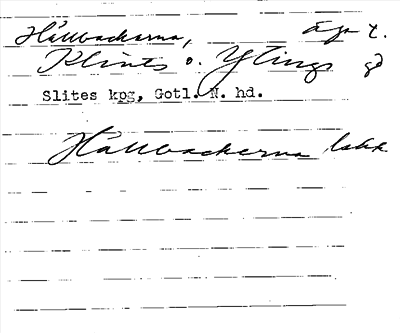 Hällbackarna, Äga t.
Klints o. Ylings gd
Slites kpg, Gotl. N. hd.
Hällbackarna